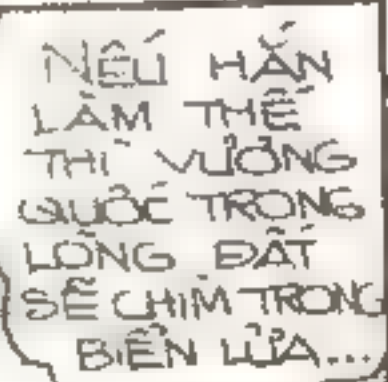 NẾU HẮN
LÀM THẾ
THÌ VƯƠNG
QUỐC TRONG
LÒNG ĐẤT
SẼ CHÌM TRONG
BIỂN LỬA...